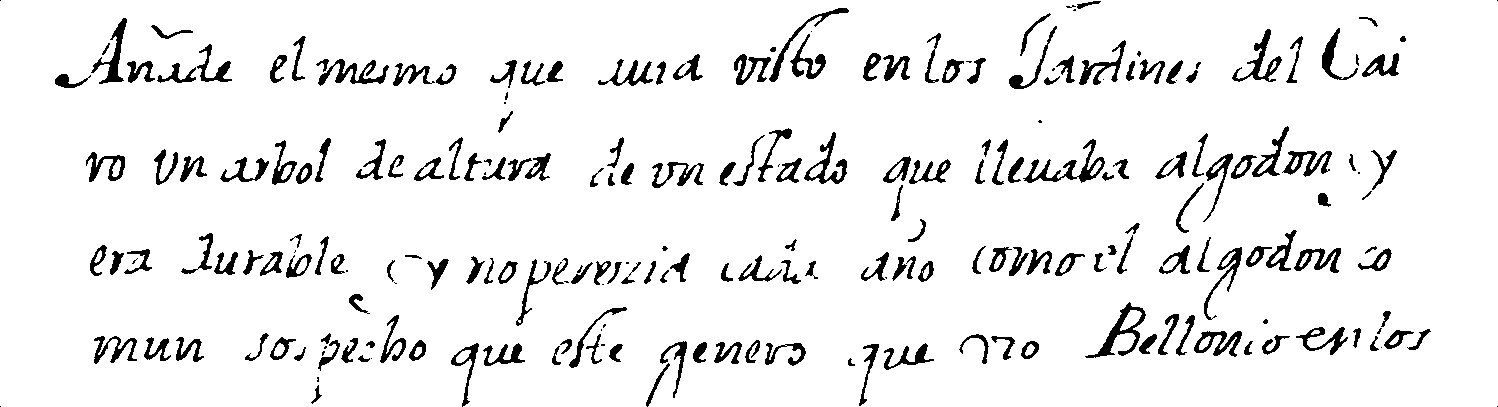 Añade el mesmo que auia visto en los Jardines del Cai
ro vn arbol de altura de vn estado que lleuaba algodon, y
era durable, y no perezia cada año como el algodon co
mun sospecho que este genero que vio Bellonio en los